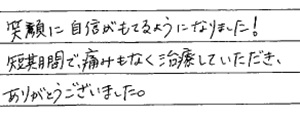 笑顔に自信がもてるようになりました!
短期間で、痛みもなく治療していただき、
ありがとうございました。